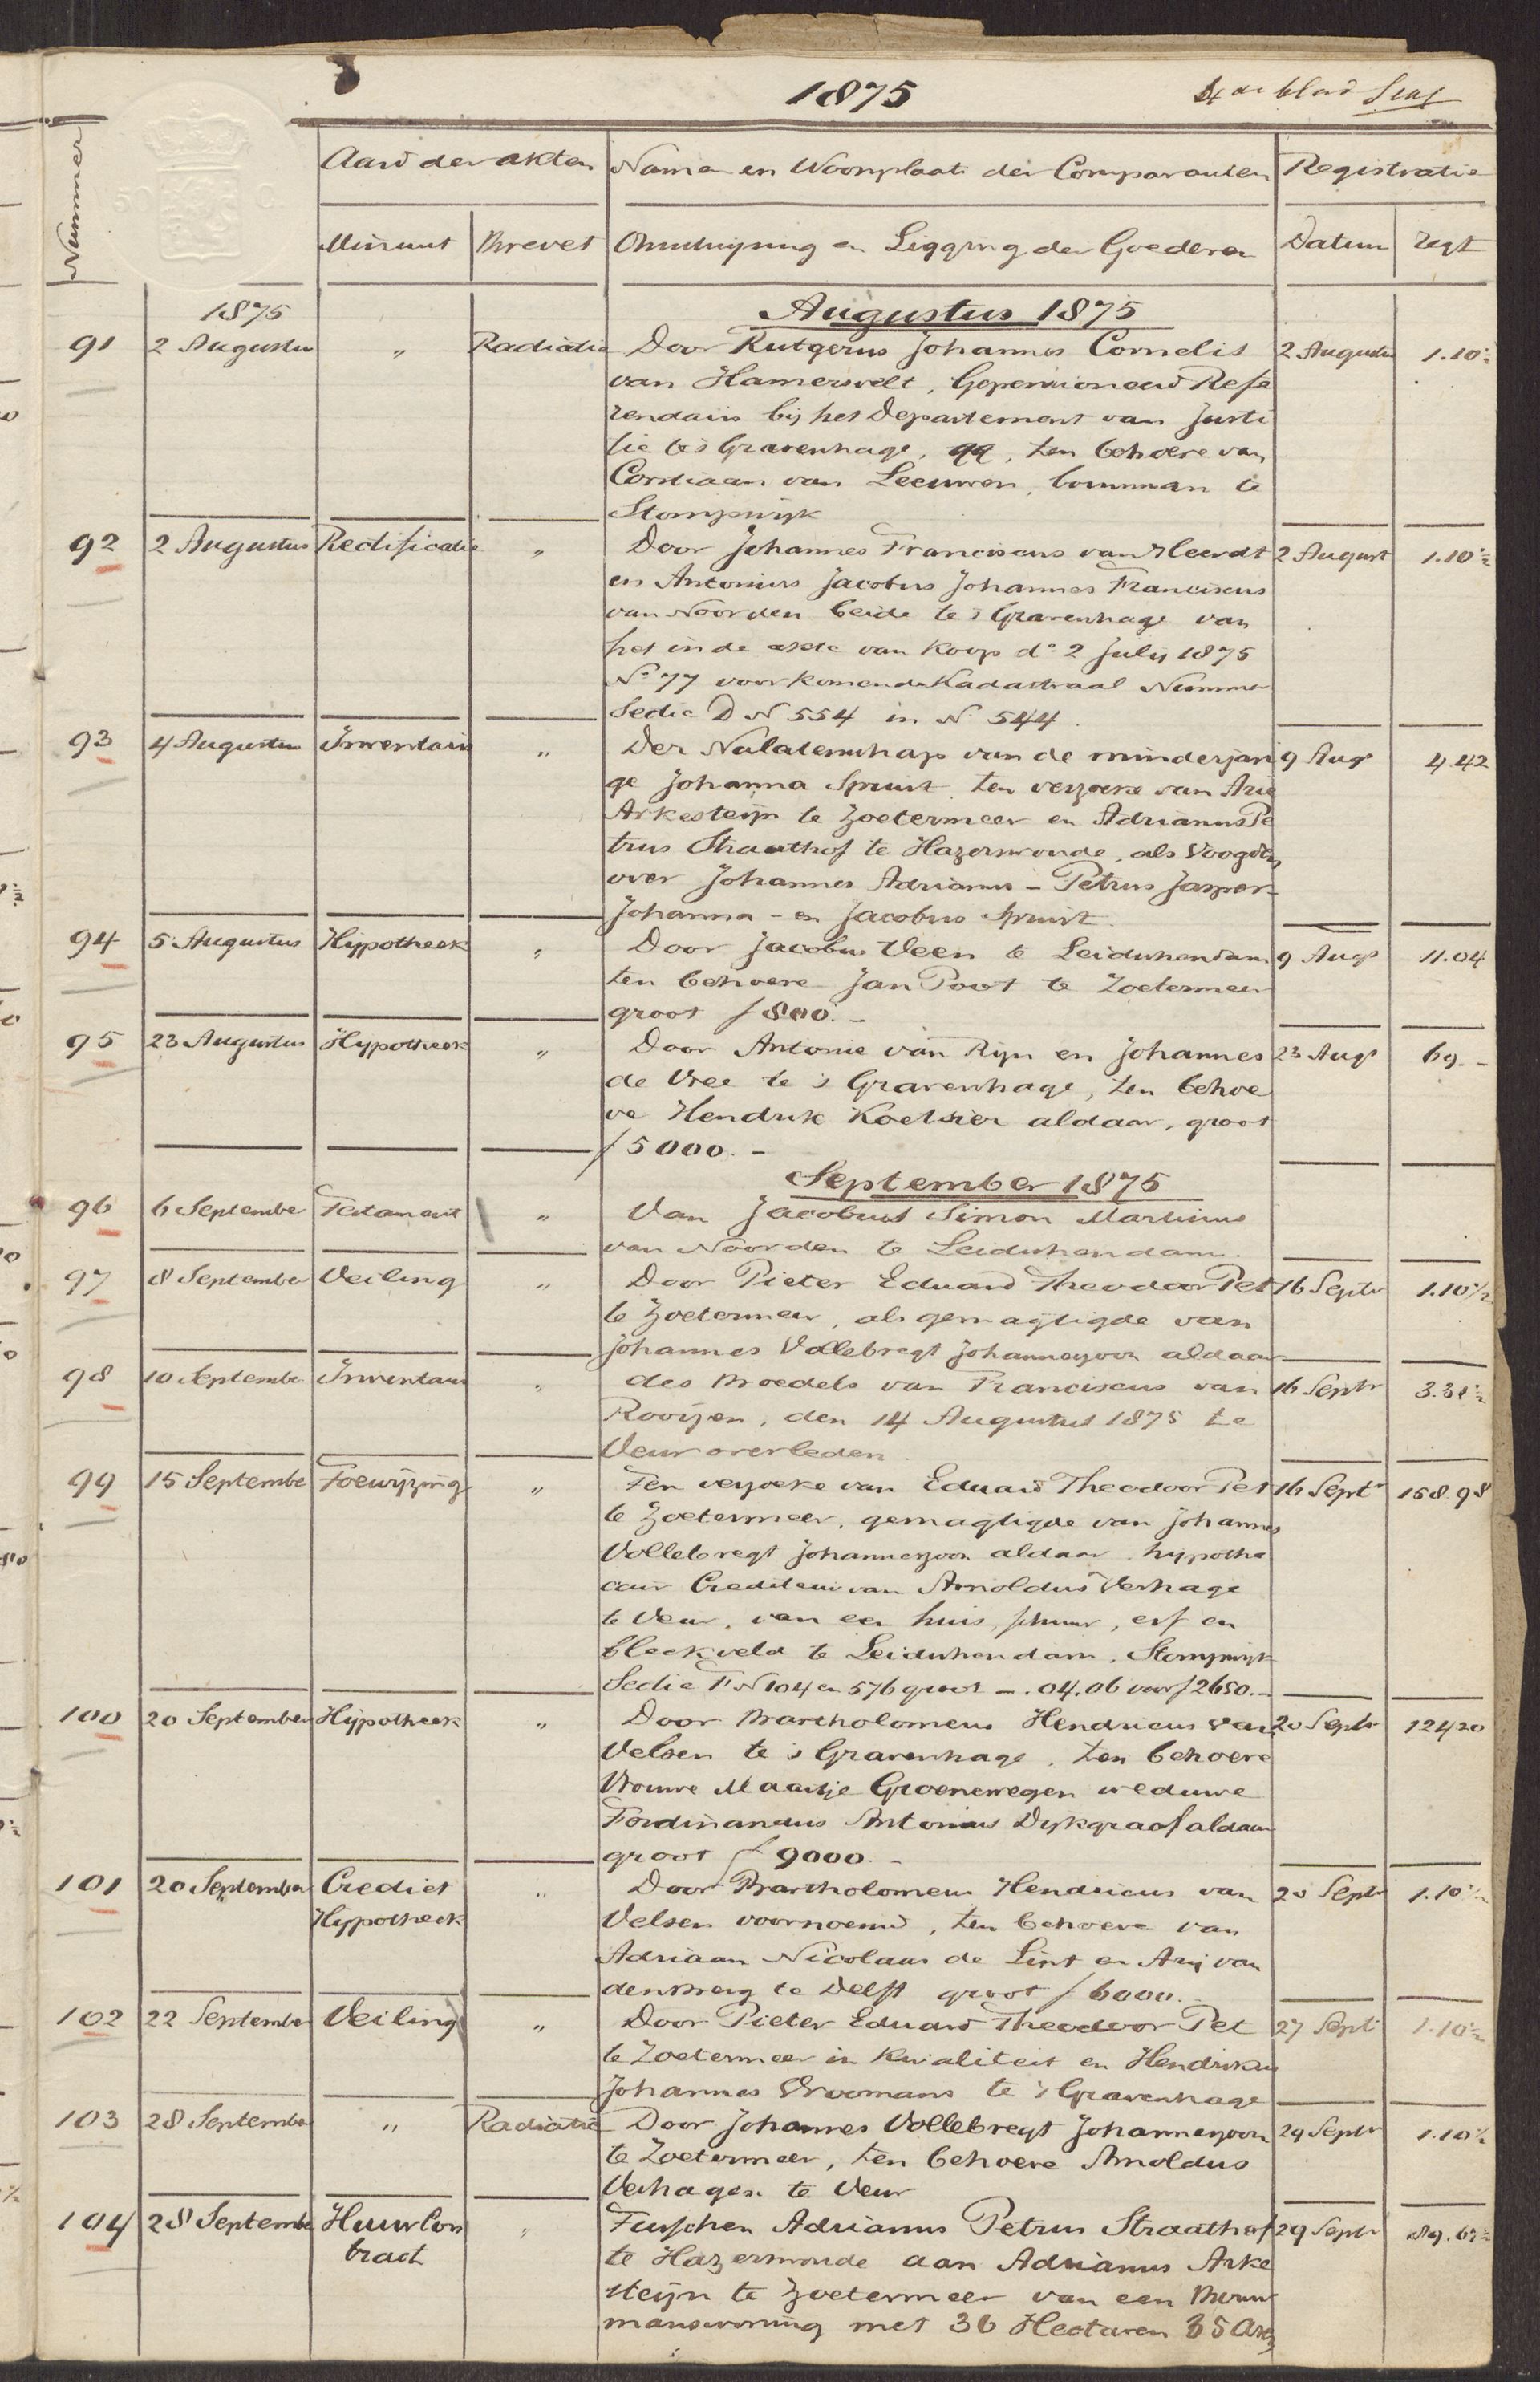 1875
4de blad
Nummer
Aard der akten Namen en Woonplaats der Comparanten Registratie
Minuut Brevet Omschrijving en Ligging der Goederen Datum regt
1875 Augustus 1875
91 2 Augustus " Radiatie Door Rutgerus Johannes Cornelis 2 Augustus 1.10½
van Hamersvelt, Gepensioneerd Refe
rendaris bij het Departement van Justi
tie te 's Gravenhage, qq, ten behoeve van
van Leeuwen, bouwman te
Stompwijk
92 2 Augustus Rectificatie " Door Johannes Franciscus van Heerdt 2 August 1.10½
en Antonius Jacobus Johannes Franciscus
van Noorden beide te 's Gravenhage van
het in de akte van Koop d° 2 July 1875
N° 77 voorkomende Kadastraal Nummer
Sectie D N 554 in N 544.
93 4 Augustus Inventaris " Der Nalatenschap van de minderjari 9 Augs 4.42
ge Johanna Spruit ten verzoeke van Arie
Arkesteijn te Zoetermeer en Adrianus Pe
trus Straathof te Hazerswoude, als Voogden
over Johannes Adrianus - Petrus Jasper -
Johanna - en Jacobus Spruit
94 5 Augustus Hypotheek " Door Jacobus Veen te Leidschendam 9 Augs 11.04
ten behoeve Jan Poot te Zoetermeer
groot ƒ 800.-
95 23 Augustus Hypotheek " Door Antonie van Rijn en Johannes 23 Augs 69.-
de Vree te 's Gravenhage, ten behoe
ve Hendrik Koetsier aldaar, groot
ƒ 5000.-
September 1875
96 6 September Testament " Van Jacobus Simon Martinus
van Noorden te Leidschendam.
97 8 September Veiling " Door Pieter Eduard Theodoor Pet 16 Septr 1.10½
te Zoetermeer, als gemagtigde van
Johannes Vollebregt Johanneszoon aldaar
98 10 September Inventaris " des Boedels van Franciscus van 16 Septr 3.31½
Rooijen, den 14 Augustus 1875 te
Veur overleden.
99 15 September Toewijzing " Ten verzoeke van Eduard Theodoor Pet 16 Septr 168.98
te Zoetermeer, gemagtigde van Johannes
Vollebregt Johanneszoon aldaar. hypothe
cair Crediteur van Arnoldus Verhage
te Veur, van een huis, schuur, erf en
bleekveld te Leidschendam, Stompwijk
Sectie F N 104 en 576 groot -.04.06 voor ƒ 2650.-
100 20 September Hypotheek " Door Bartholomeus Hendricus van 20 Septr 124.20
Velsen te 's Gravenhage, ten behoeve
Vrouwe Maartje Groenewegen weduwe
Ferdinandus Antonius Dijkgraaf aldaar
groot ƒ 9000.-
101 20 September Crediet " Door Bartholomeus Hendricus van 20 Septr 1.10½
Hypotheek Velsen voornoemd, ten behoeve van
Adriaan Nicolaas de Lint en Arij van
den Berg te Delft groot ƒ 6000.-
102 22 September Veiling " Door Pieter Eduard Theodoor Pet 27 Sept 1.10½
te Zoetermeer in Kwaliteit en Hendrikus
Johannes Vroomans te 's Gravenhage
103 28 September " Radiatie Door Johannes Vollebregt Johanneszoon 29 Septr 1.10½
te Zoetermeer, ten behoeve Arnoldus
Verhagen te Veur
104 28 September Huurcon " Tusschen Adrianus Petrus Straathof 29 Septr 89.67½
tract te Hazerswoude aan Adrianus Arke
steijn te Zoetermeer van een Bouw
manswoning met 36 Hectaren 35 Aren